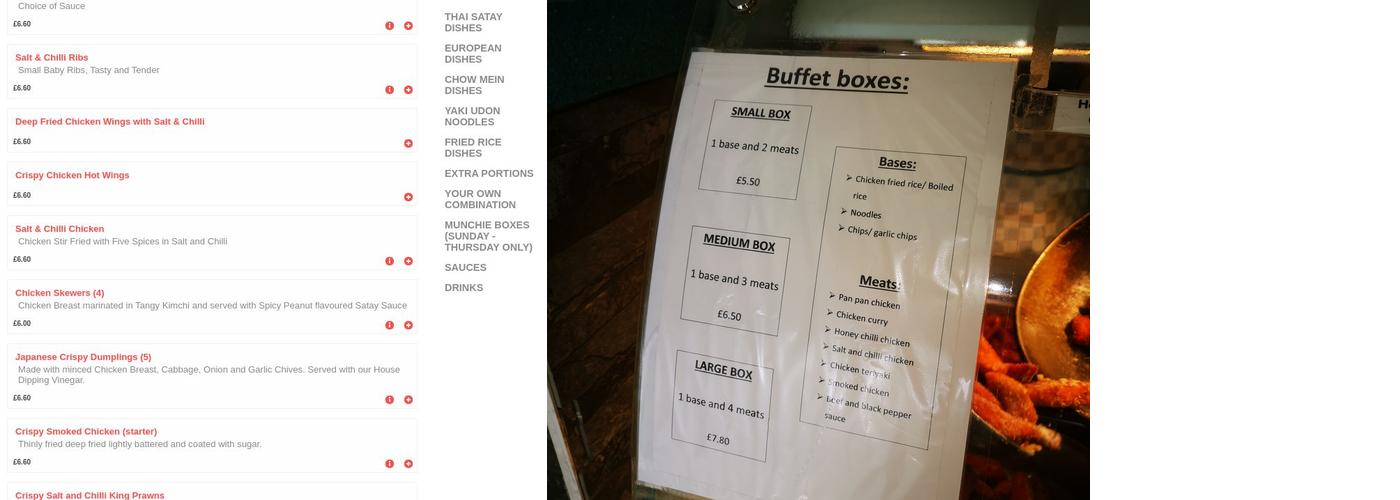 Choice of Sauce
£6.60
Salt & Chilli Ribs
Small Baby Ribs, Tasty and Tender
£6.60
Deep Fried Chicken Wings with Salt & Chilli
£6.60
Crispy Chicken Hot Wings
£6.60
Salt & Chilli Chicken
Chicken Stir Fried with Five Spices in Salt and Chilli
£6.60
Chicken Skewers (4)
Chicken Breast marinated in Tangy Kimchi and served with Spicy Peanut flavoured Satay Sauce
£6.00
Japanese Crispy Dumplings (5)
Made with minced Chicken Breast, Cabbage, Onion and Garlic Chives. Served with our House
Dipping Vinegar.
£6.60
Crispy Smoked Chicken (starter)
Thinly fried deep fried lightly battered and coated with sugar.
£6.60
Crispy Salt and Chilli King Prawns
THAI SATAY
DISHES
EUROPEAN
DISHES
CHOW MEIN
DISHES
YAKI UDON
NOODLES
FRIED RICE
DISHES
EXTRA PORTIONS
YOUR OWN
COMBINATION
MUNCHIE BOXES
(SUNDAY -
THURSDAY ONLY)
SAUCES
DRINKS
Buffet boxes:
SMALL BOX
1 base and 2 meats
£5.50
MEDIUM BOX
1 base and 3 meats
£6.50
LARGE BOX
1 base and 4 meats
£7.80
Bases:
➢ Chicken fried rice/ Boiled
rice
➢ Noodles
➢ Chips/ garlic chips
Meats:
➢ Pan pan chicken
➢ Chicken curry
➢ Honey chilli chicken
➢ Salt and chilli chicken
➢ Chicken teriyaki
➢ Smoked chicken
➢ Beef and black pepper
sauce